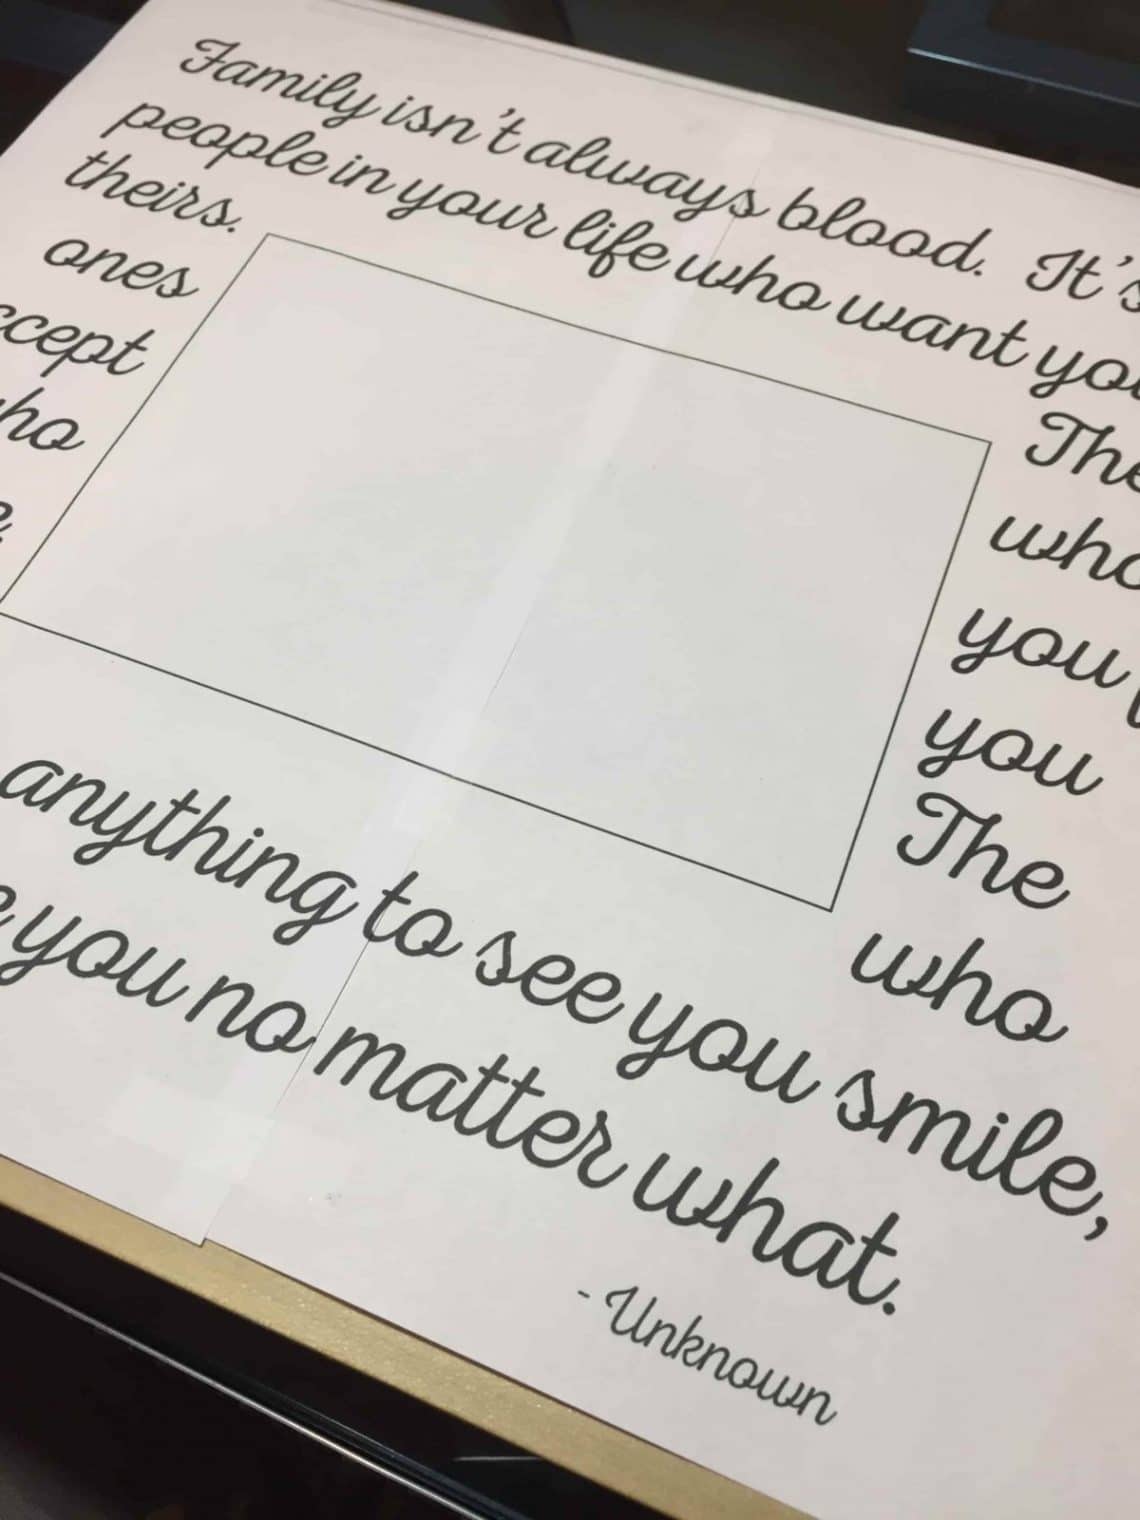 Family isn't always blood. It's
people in your life who want you
theirs. The
ones who
accept you
who you
The
who
anything to see you smile,
you no matter what.
- Unknown